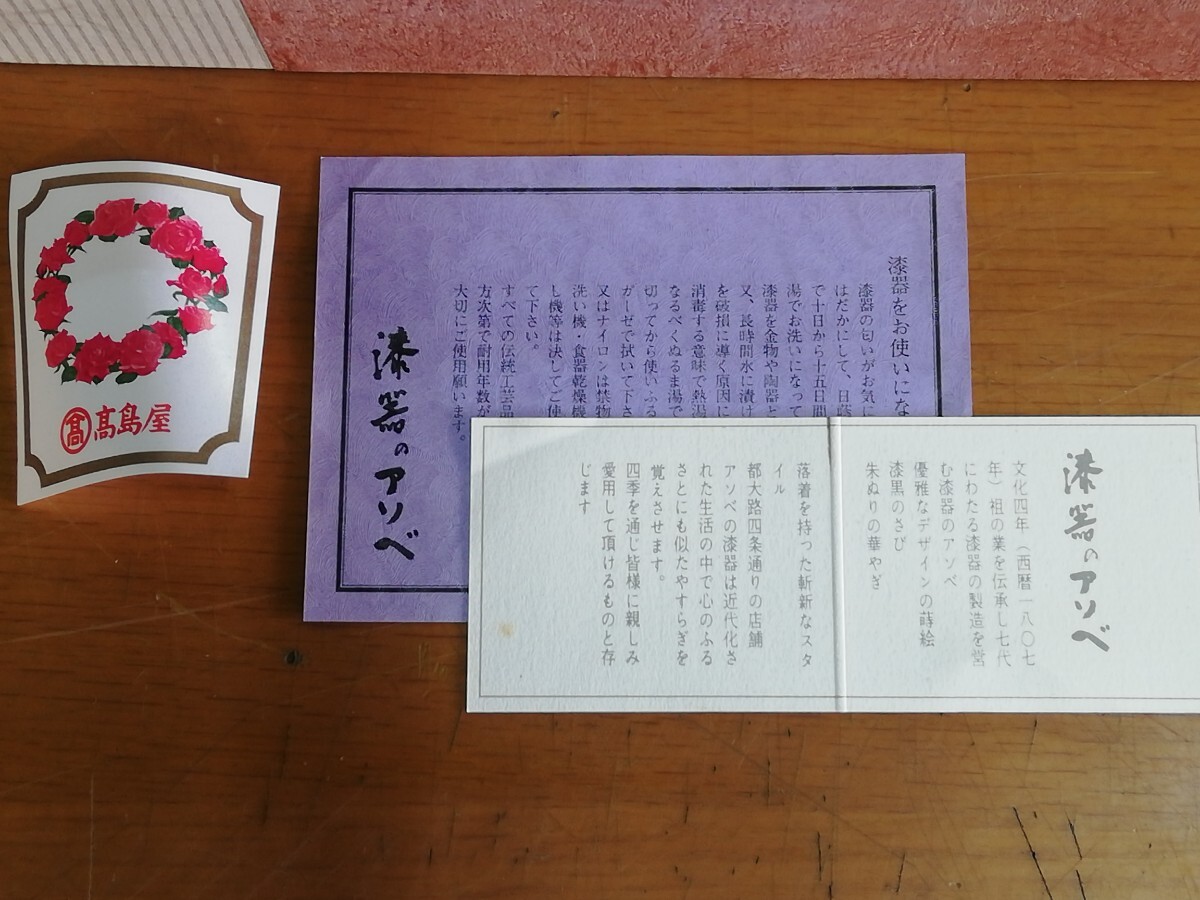 高
髙島屋
漆器をお使いにな
漆器の匂いがお気に
はだかにして、日蔭
で十日から十五日間
湯でお洗いになって
漆器を金物や陶器と
又、長時間水に漬け
を破損に導く原因に
消毒する意味で熱湯
なるべくぬるま湯で
切ってから使いふる
ガーゼで拭いて下さ
又はナイロンは禁物
洗い機・食器乾燥機
し機等は決してご使
て下さい。
すべての伝統工芸品
方次第で耐用年数が
大切にご使用願います。
漆器のアソベ
漆器のアソベ
文化四年(西暦一八〇七
年)祖の業を伝承し七代
にわたる漆器の製造を営
む漆器のアソベ
優雅なデザインの蒔絵
漆黒のさび
朱ぬりの華やぎ
落着を持った斬新なスタ
イル
都大路四条通りの店舗
アソベの漆器は近代化さ
れた生活の中で心のふる
さとにも似たやすらぎを
覚えさせます。
四季を通じ皆様に親しみ
愛用して頂けるものと存
じます